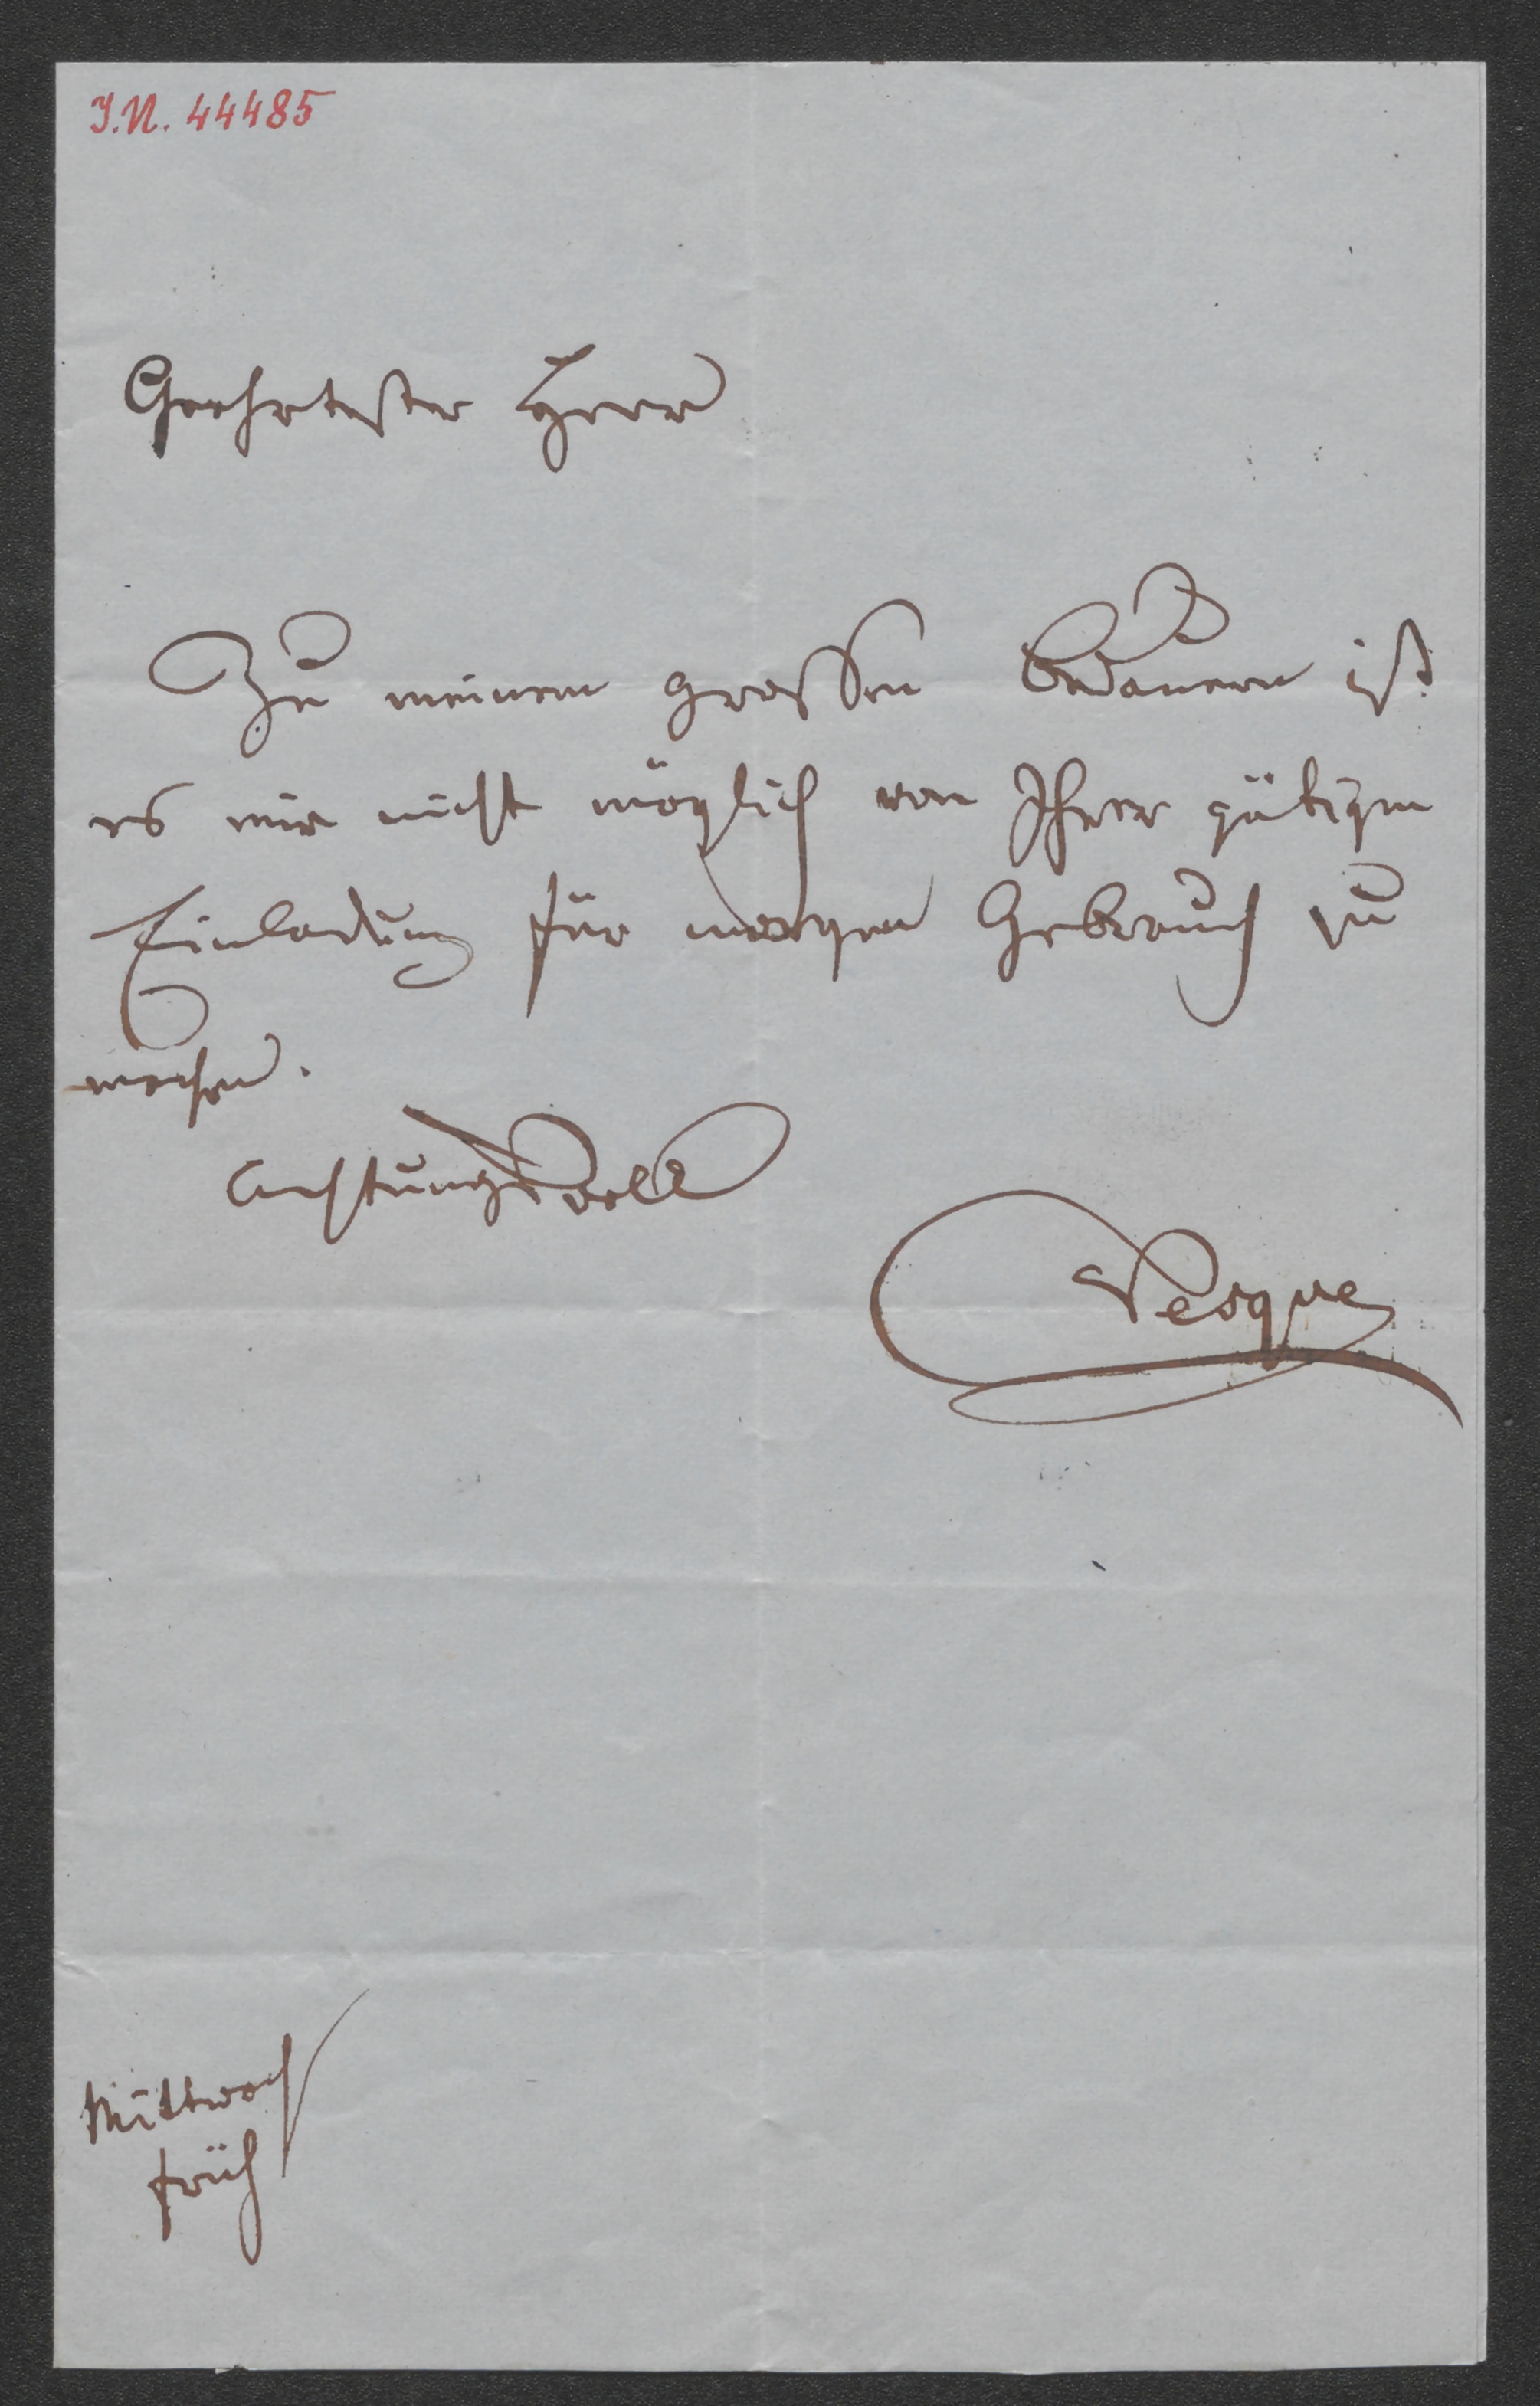 I.N. 44485
Geehrtester Herr
Zu meinem grossen Bedauern ist
es mir nicht möglich von Ihrer gütigen
Einladung für morgen Gebrauch zu
machen.
Achtungsvoll
Vesque
Mittwoch
früh